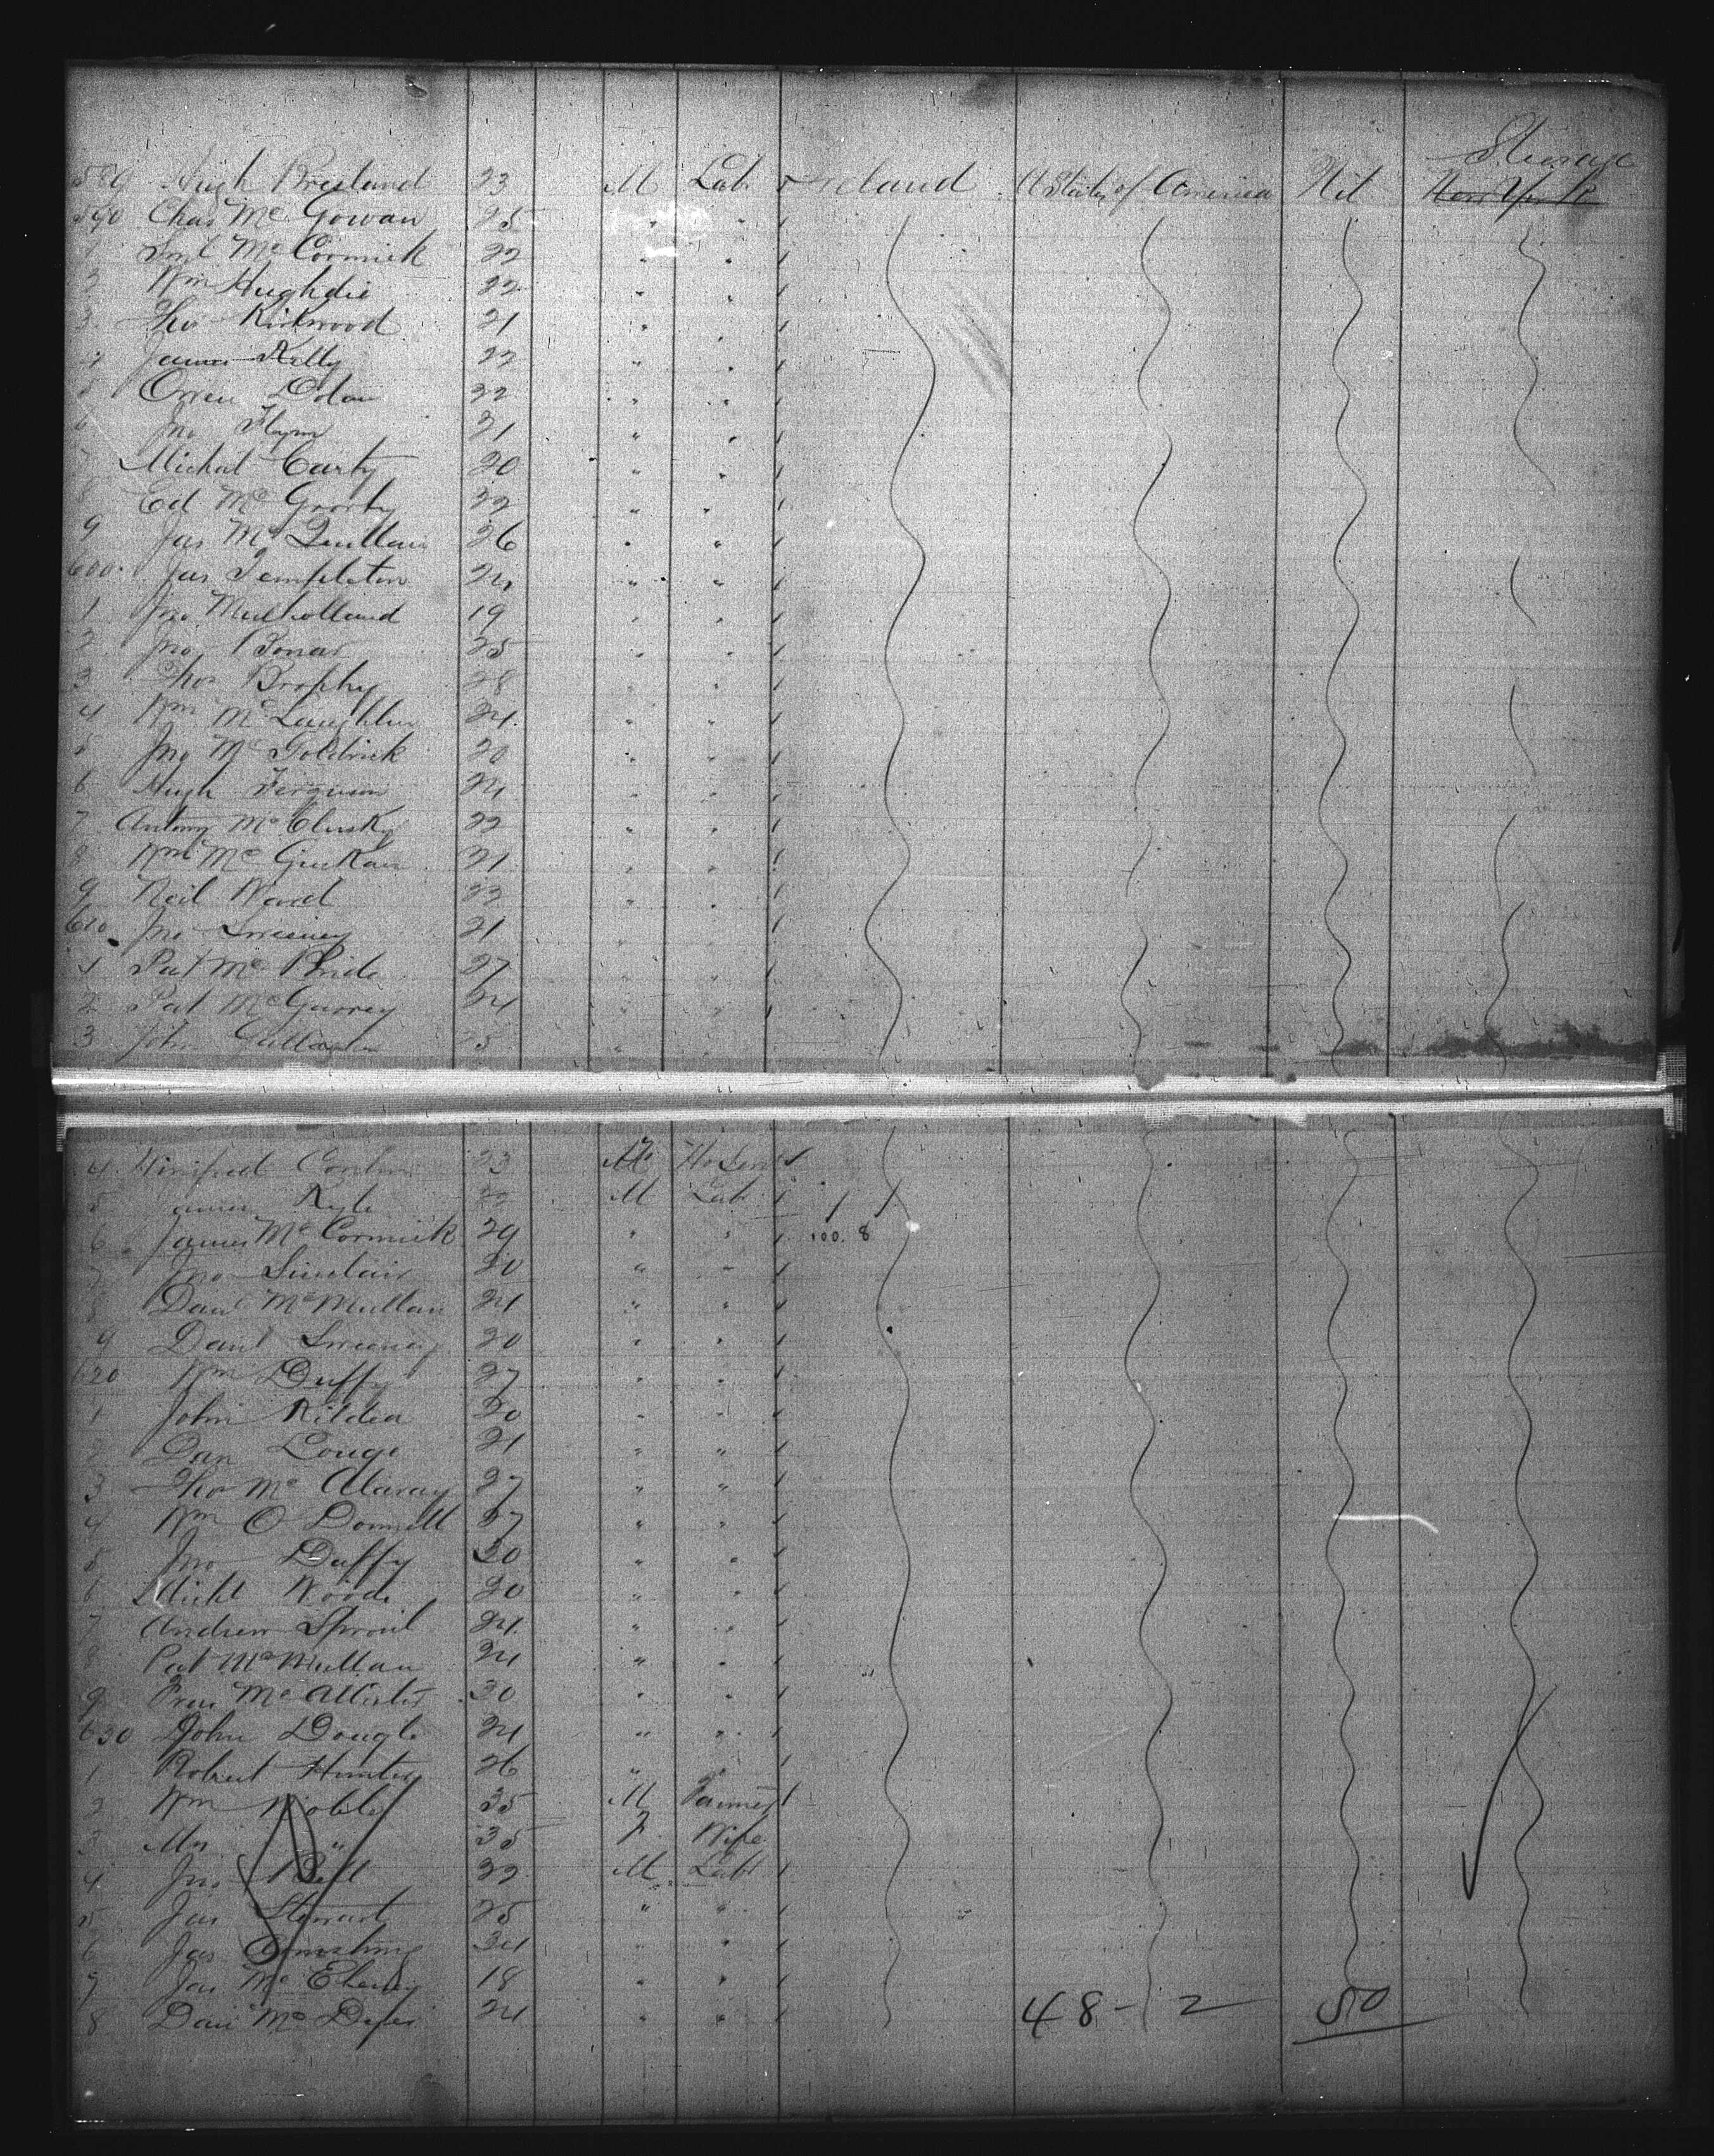 Steerage
589 Hugh Bresland 23 M Lab Ireland U States of America Nil New York
590 Chas Mc Gowan 25 " "
1 Saml Mc Cormick 22 " "
2 Wm Hughdie 22 " "
3 Thos Kirkwood 21 " "
4 James Kelly 22 " "
5 Owen Dolan 22 " "
6 Jno Flynn 21 " "
7 Michal Carty 20 " "
8 Ed Mc 22 " "
9 Jas Mc Quillan 26 " "
600 Jas Templeton 24 " "
1 Jno Mulholland 19 " "
2 Jno Bonar 25 " "
3 Thos Brophy 28 " "
4 Wm Mc Laughlin 24 " "
5 Jno Mc Goldrick 20 " "
6 Hugh Ferguson 24 " "
7 Antony Mc Clusky 22 " "
8 Wm Mc Guckan 21 " "
9 Neil Ward 22 " "
610 Jno Sweeney 21 " "
1 Pat Mc Bride 27 " "
2 Pat Mc Garvey 24 " "
3 John Gallagher 25 " "
4 Winifred Conlon 23 Ho Servt
5 James Kyle 22 M Lab
6 James Mc Cormick 29 " " 100. 8
7 Jno Sinclair 20 " "
8 Danl Mc Mullan 24 " "
9 Danl Sweeney 20 " "
620 Wm Duffy 27 " "
1 John Kildea 20 " "
2 Dan Louge 21 " "
3 Thos Mc Alaray 27 " "
4 Wm O Donnell 27 " "
5 Jno Duffy 30 " "
6 Michl Woods 20 " "
7 Andrew Sproul 24 " "
8 Pat Mc Mullan 24 " "
9 Mc Allister 30 " "
630 John Dougle 24 " "
1 Robert Hunter 26 " "
2 Wm Noble 35 M Farmer
3 Mrs " 35 F Wife
4 Jno Bell 22 M Lab
5 Jas Stewart 25 " "
6 Jas Armstrong 34 " "
7 Jas Mc 18 " "
8 Dan Mc 24 " " 48 - 2 50